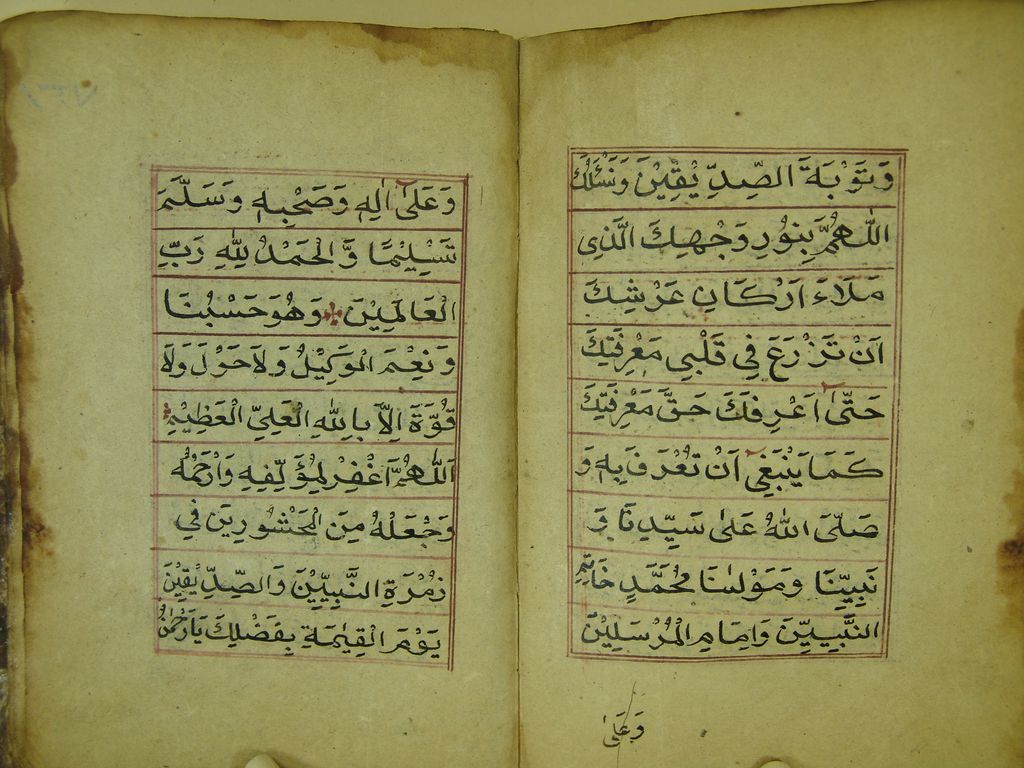 وَتَوْبَةَ الصِّدِّيْقِيْنَ وَنَسْئَلُكَ
اَللّٰهُمَّ بِنُوْرِ وَجْهِكَ الَّذِى
مَلَاءَ اَرْكَانِ عَرْشِكَ
اَنْ تَزْرَعَ فِى قَلْبِى مَعْرِفَتِكَ
حَتّٰى اَعْرِفَكَ حَقَّ مَعْرِفَتِكَ
كَمَا يَنْبَغِى اَنْ تُعْرَفَ بِهِ وَ
صَلَّى اللّٰهُ عَلٰى سَيِّدِنَا وَ
نَبِيِّنَا وَمَوْلٰنَا مُحَمَّدٍ خَاتَمِ
النَّبِيِّيْنَ وَاِمَامِ الْمُرْسَلِيْنَ
وَعَلٰى
وَعَلٰى اٰلِهِ وَصَحْبِهِ وَسَلَّمَ
تَسْلِيْمًا وَّالْحَمْدُ لِلّٰهِ رَبِّ
الْعَالَمِيْنَ وَهُوَ حَسْبُنَا
وَنِعْمَ الْوَكِيْلُ وَلَا حَوْلَ وَلَا
قُوَّةَ اِلَّا بِاللّٰهِ الْعَلِيِّ الْعَظِيْمِ
اَللّٰهُمَّ اغْفِرْ لِمُؤَلِّفِهِ وَارْحَمْهُ
وَجْعَلْهُ مِنَ الْمَحْشُوْرِيْنَ فِي
زُمْرَةِ النَّبِيِّيْنَ وَالصِّدِّيْقِيْنَ
يَوْمَ الْقِيٰمَةِ بِفَضْلِكَ يَا رَحْمٰنُ